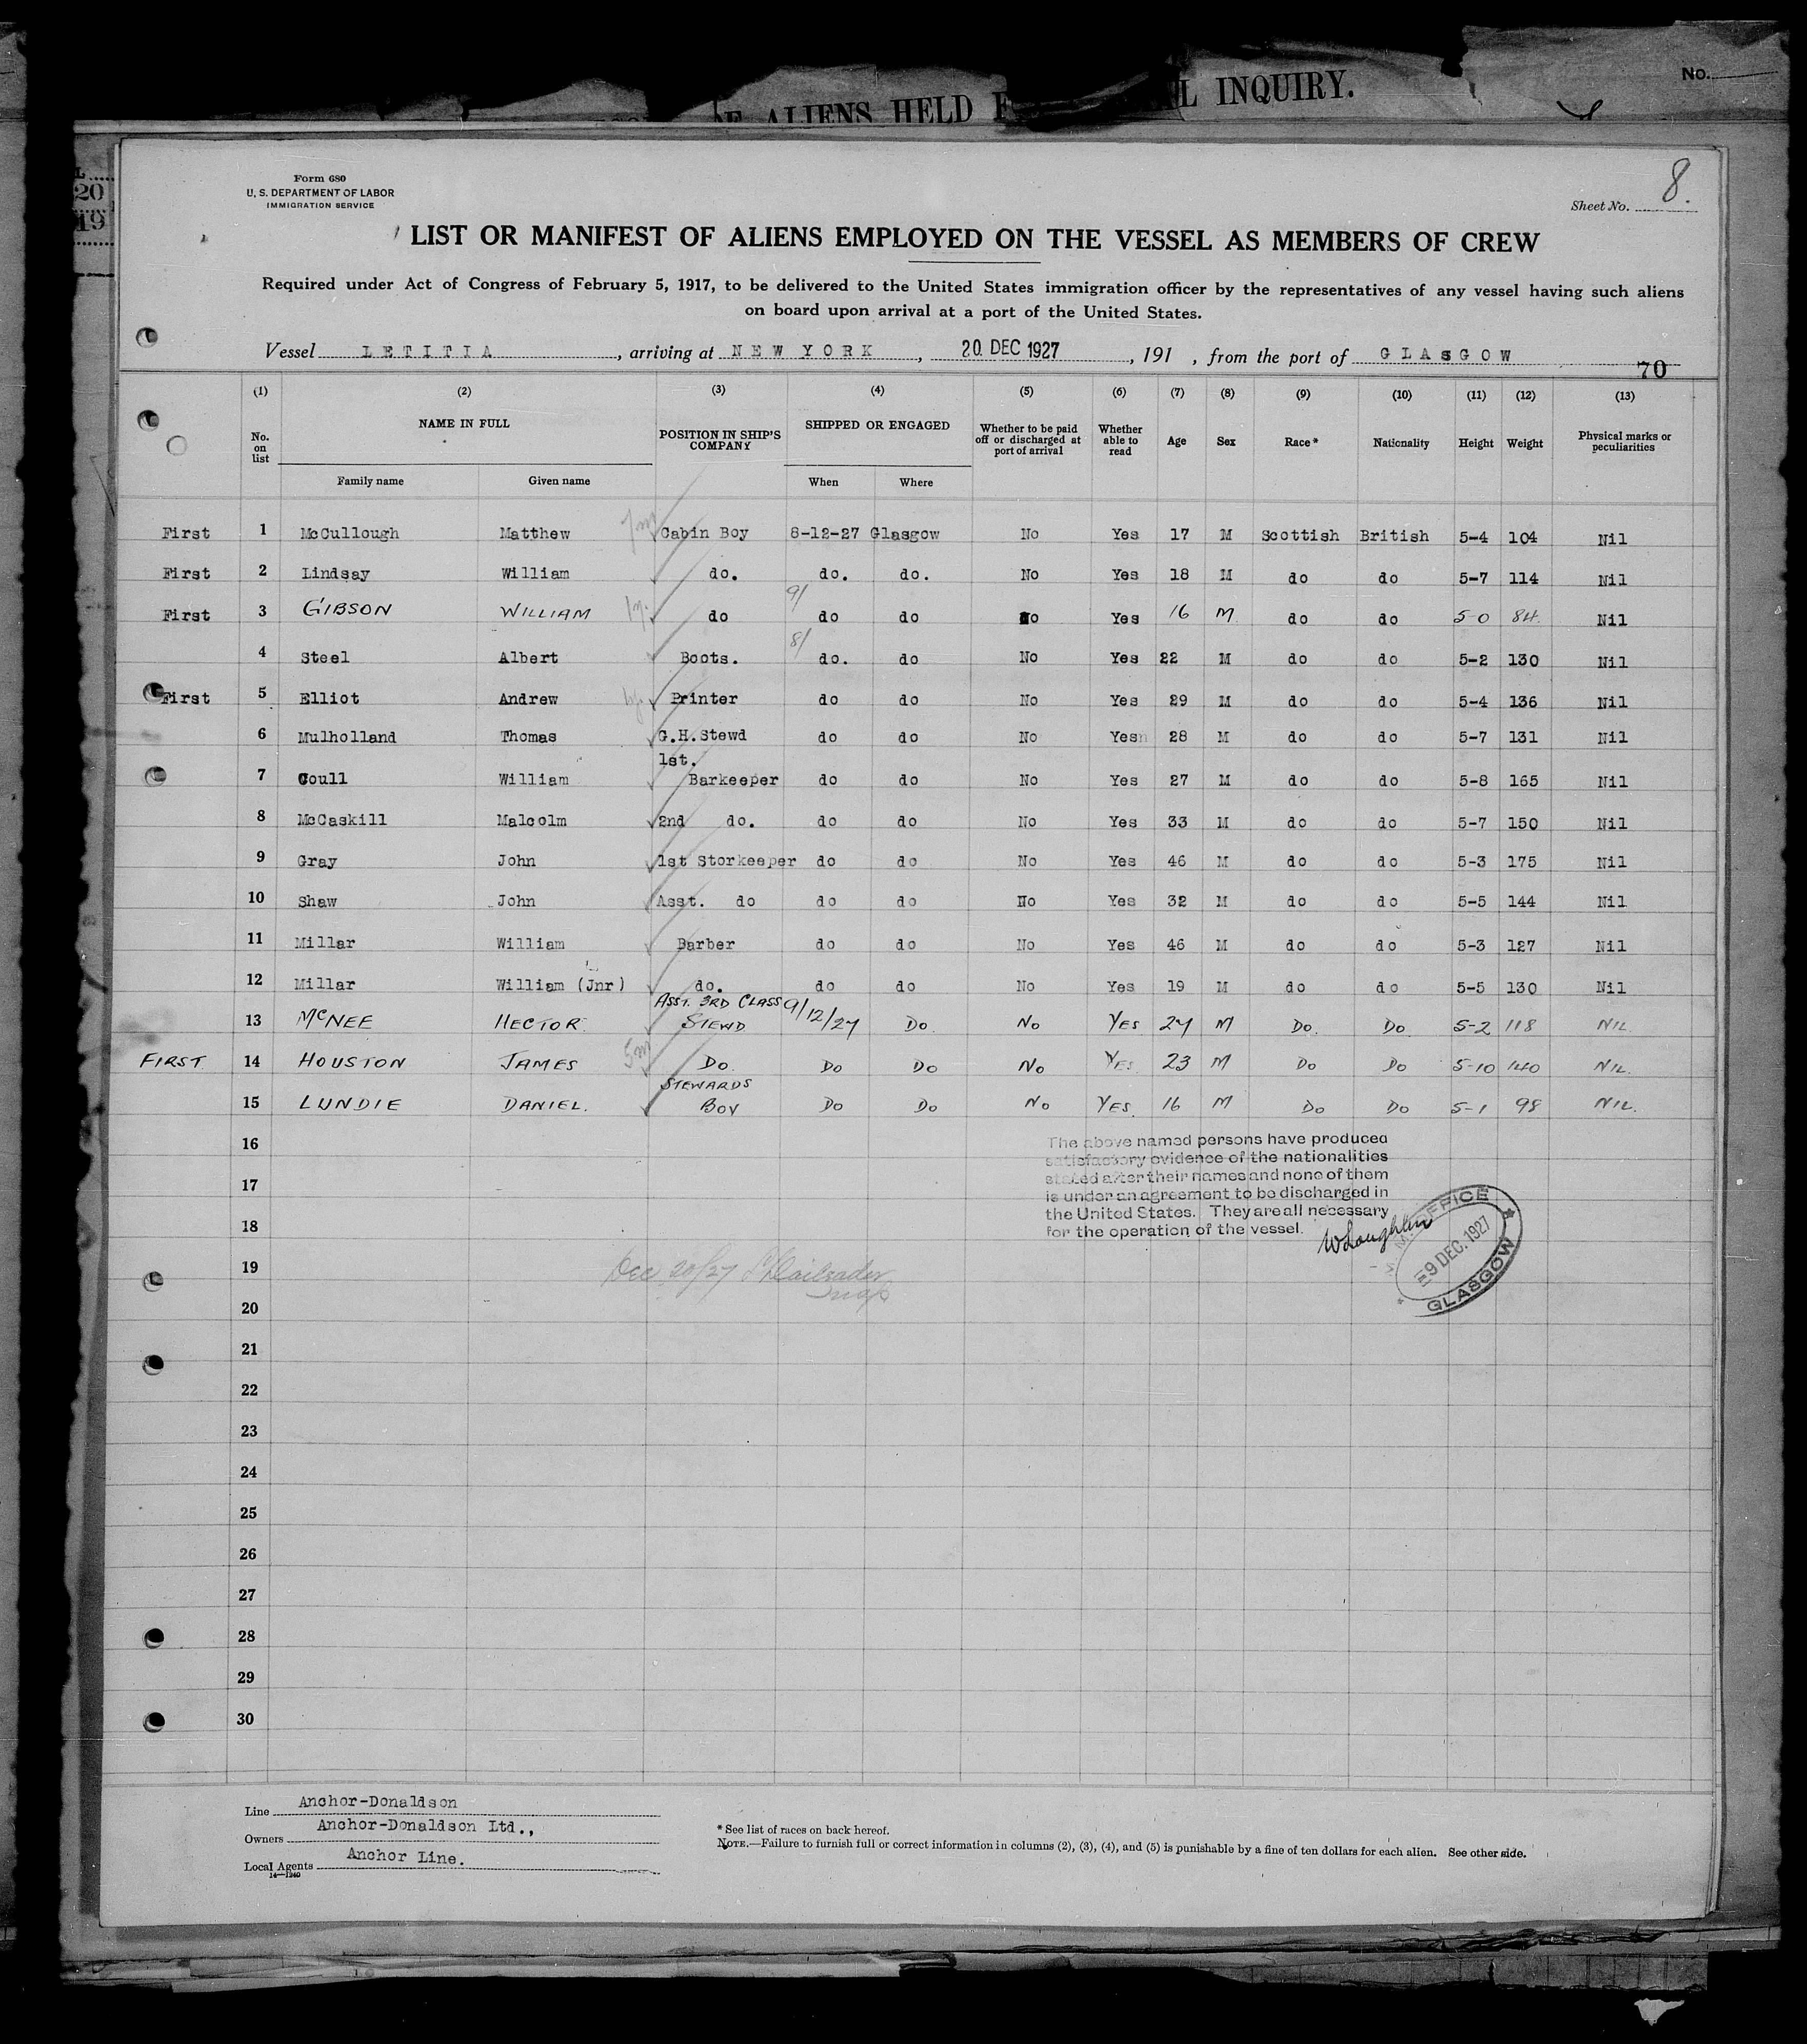 No.
E ALIENS HELD F L INQUIRY.
20
19
Form 680
U. S. DEPARTMENT OF LABOR
IMMIGRATION SERVICE
Sheet No. 8.
LIST OR MANIFEST OF ALIENS EMPLOYED ON THE VESSEL AS MEMBERS OF CREW
Required under Act of Congress of February 5, 1917, to be delivered to the United States immigration officer by the representatives of any vessel having such aliens
on board upon arrival at a port of the United States.
Vessel LETITIA, arriving at NEW YORK, 20 DEC 1927, 191 , from the port of GLASGOW
70
(1) (2) (3) (4) (5) (6) (7) (8) (9) (10) (11) (12) (13)
No. on list NAME IN FULL POSITION IN SHIP'S COMPANY SHIPPED OR ENGAGED Whether to be paid off or discharged at port of arrival Whether able to read Age Sex Race* Nationality Height Weight Physical marks or peculiarities
Family name Given name When Where
First 1 McCullough Matthew Cabin Boy 8-12-27 Glasgow No Yes 17 M Scottish British 5-4 104 Nil
First 2 Lindsay William do. do. do. No Yes 18 M do do 5-7 114 Nil
First 3 GIBSON WILLIAM do 9/ do do No Yes 16 M do do 5-0 84 Nil
4 Steel Albert Boots. 8/ do. do No Yes 22 M do do 5-2 130 Nil
First 5 Elliot Andrew Printer do do No Yes 29 M do do 5-4 136 Nil
6 Mulholland Thomas G.H.Stewd do do No Yes 28 M do do 5-7 131 Nil
7 Coull William 1st. Barkeeper do do No Yes 27 M do do 5-8 165 Nil
8 McCaskill Malcolm 2nd do. do do No Yes 33 M do do 5-7 150 Nil
9 Gray John 1st Storkeeper do do No Yes 46 M do do 5-3 175 Nil
10 Shaw John Asst. do do do No Yes 32 M do do 5-5 144 Nil
11 Millar William Barber do do No Yes 46 M do do 5-3 127 Nil
12 Millar William (Jnr) do. do do No Yes 19 M do do 5-5 130 Nil
13 McNEE HECTOR ASST. 3RD CLASS STEWD 9/12/27 DO NO YES 27 M DO. DO 5-2 118 NIL.
FIRST 14 HOUSTON JAMES DO DO DO NO YES 23 M DO DO 5-10 140 NIL.
15 LUNDIE DANIEL. STEWARDS BOY DO DO NO YES. 16 M DO DO 5-1 98 NIL.
16
The above named persons have produced
satisfactory evidence of the nationalities
17
stated after their names and none of them
is under an agreement to be discharged in
the United States. They are all necessary
18
for the operation of the vessel.
M. OFFICE
9 DEC. 1927
GLASGOW
19
Dec 20/27
20
21
22
23
24
25
26
27
28
29
30
Line Anchor-Donaldson
Owners Anchor-Donaldson Ltd.,
Local Agents Anchor Line.
14—1240
* See list of races on back hereof.
NOTE.—Failure to furnish full or correct information in columns (2), (3), (4), and (5) is punishable by a fine of ten dollars for each alien. See other side.